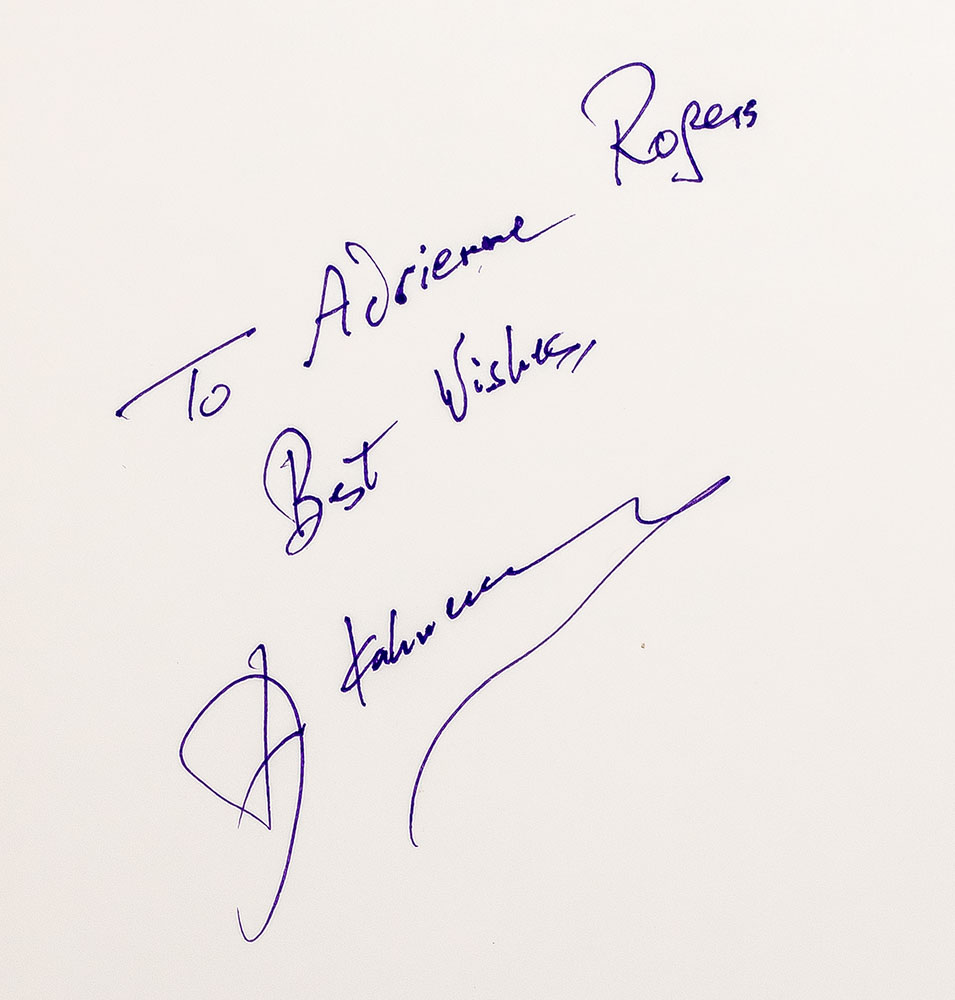 To Adrienne Rogers
Best Wishes,
D Kahneman